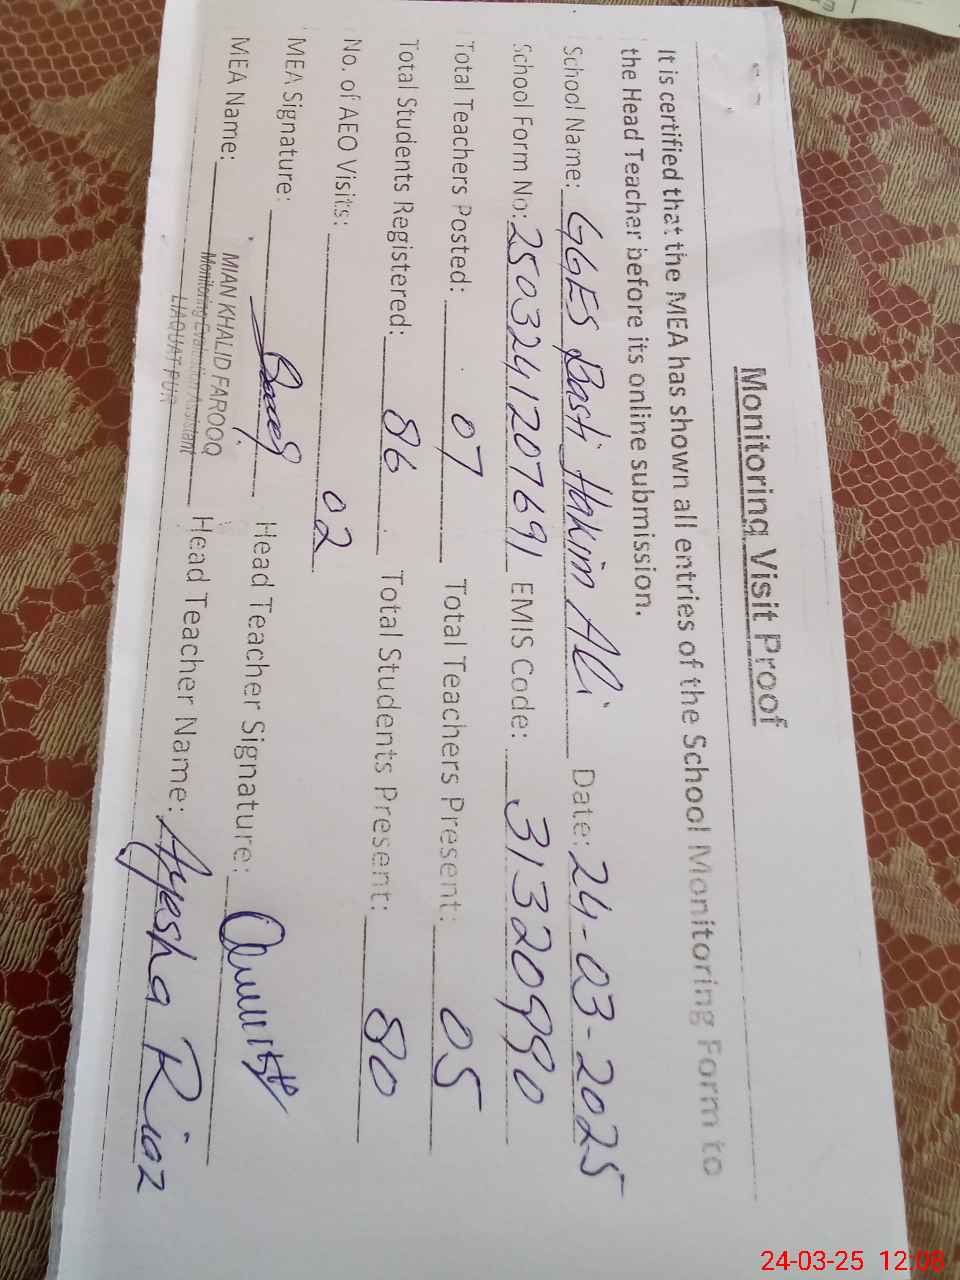 Monitoring Visit Proof
It is certified that the MEA has shown all entries of the School Monitoring Form to
the Head Teachar before its online submission.
School Name: GGES Basti Hakim Ali Date: 24-03-2025
School Form No: 2503241207691 EMIS Code: 31320990
Total Teachers Posted: 07 Total Teachers Present: 05
Total Students Registered: 86 Total Students Present: 80
No. of AEO Visits: 02
MEA Signature: Head Teacher Signature:
MEA Name: MIAN KHALID FAROOQ Head Teacher Name: Ayesha Riaz
Monitoring Evaluation Assistant
LIAQUAT PUR
24-03-25 12:08